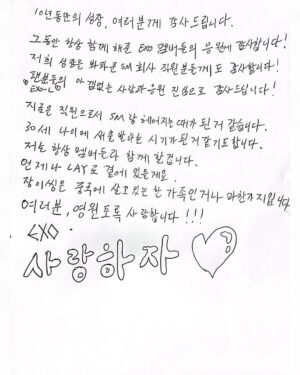 10년동안의 성장, 여러분께 감사드립니다.
그동안 항상 함께 해준 EXO 멤버들의 응원에 감사합니다!
저희 성장을 봐와준 SM 회사 직원분들께도 감사합니다!
팬분들의 아낌없는 사랑과 응원 진심으로 감사드립니다!
EXO-L
지금은 직원으로서 SM랑 헤어지는 때가 된거 같습니다.
30세 나이에 새로 발하는 시기가 된거 같기도 합니다.
저는 항상 멤버들과 함께 할겁니다.
언제나 LAY로 곁에 있을게요.
장이씽은 중국에 살고있는 한 가족인거나 마찬가지입니다.
여러분, 영원토록 사랑합니다!!!
EXO
사랑하자